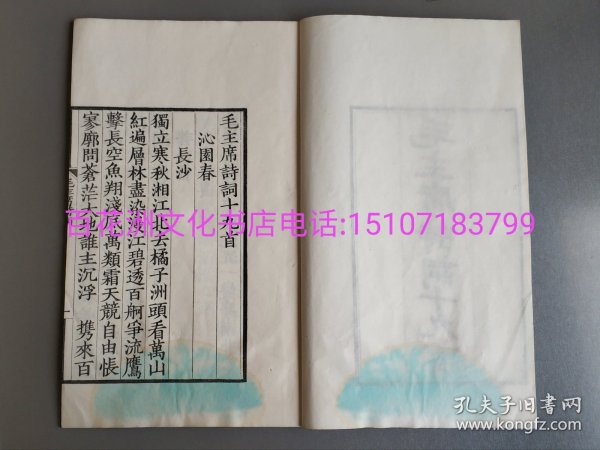 毛主席詩詞十九首
沁園春
長沙
獨立寒秋湘江北去橘子洲頭看萬山
紅遍層林盡染漫江碧透百舸爭流鷹
擊長空魚翔淺底萬類霜天競自由悵
寥廓問蒼茫大地誰主沉浮 携來百
一
百花洲文化书店电话:15107183799
孔夫子旧书网
www.kongfz.com